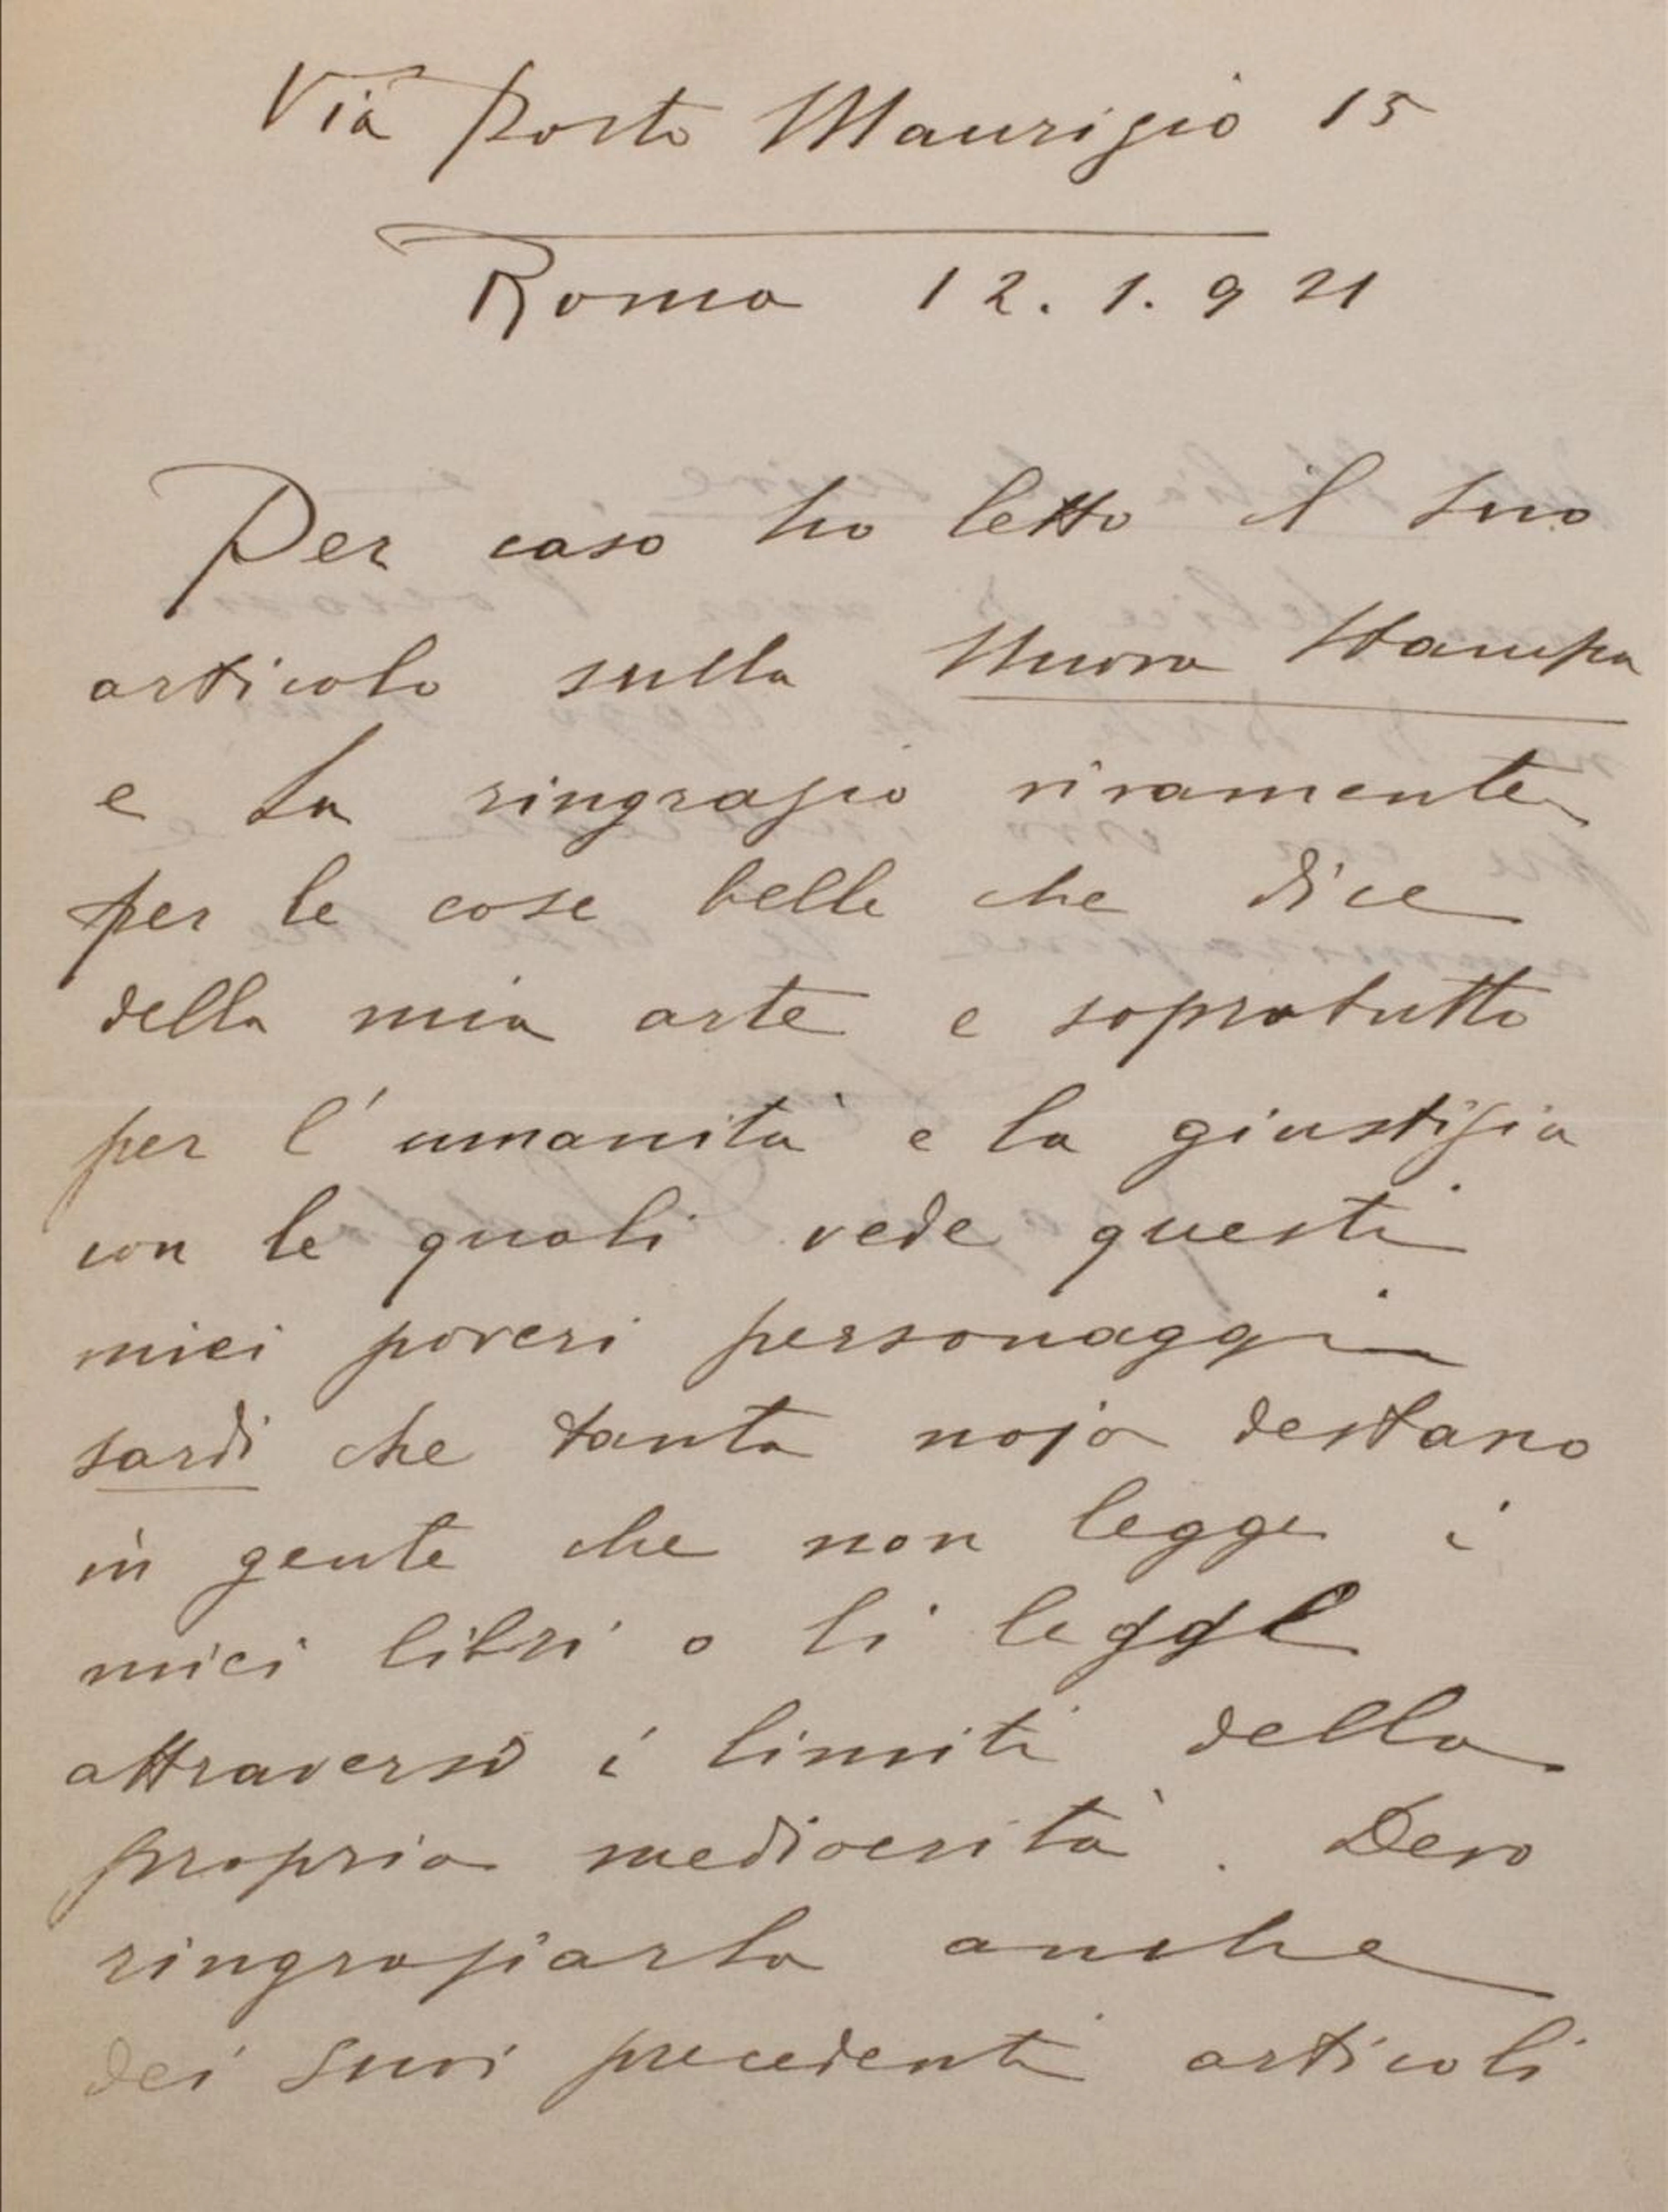 Via Porto Maurizio 15
Roma 12.1.921
Per caso ho letto il Suo
articolo sulla Nuova Stampa
e La ringrazio vivamente
per le cose belle che dice
della mia arte e sopratutto
per l'umanità e la giustizia
con le quali vede questi
miei poveri personaggi
sardi che tanta noja destano
in gente che non legge i
miei libri o li legge
attraverso i limiti della
propria mediocrità. Devo
ringraziarla anche
dei Suoi precedenti articoli